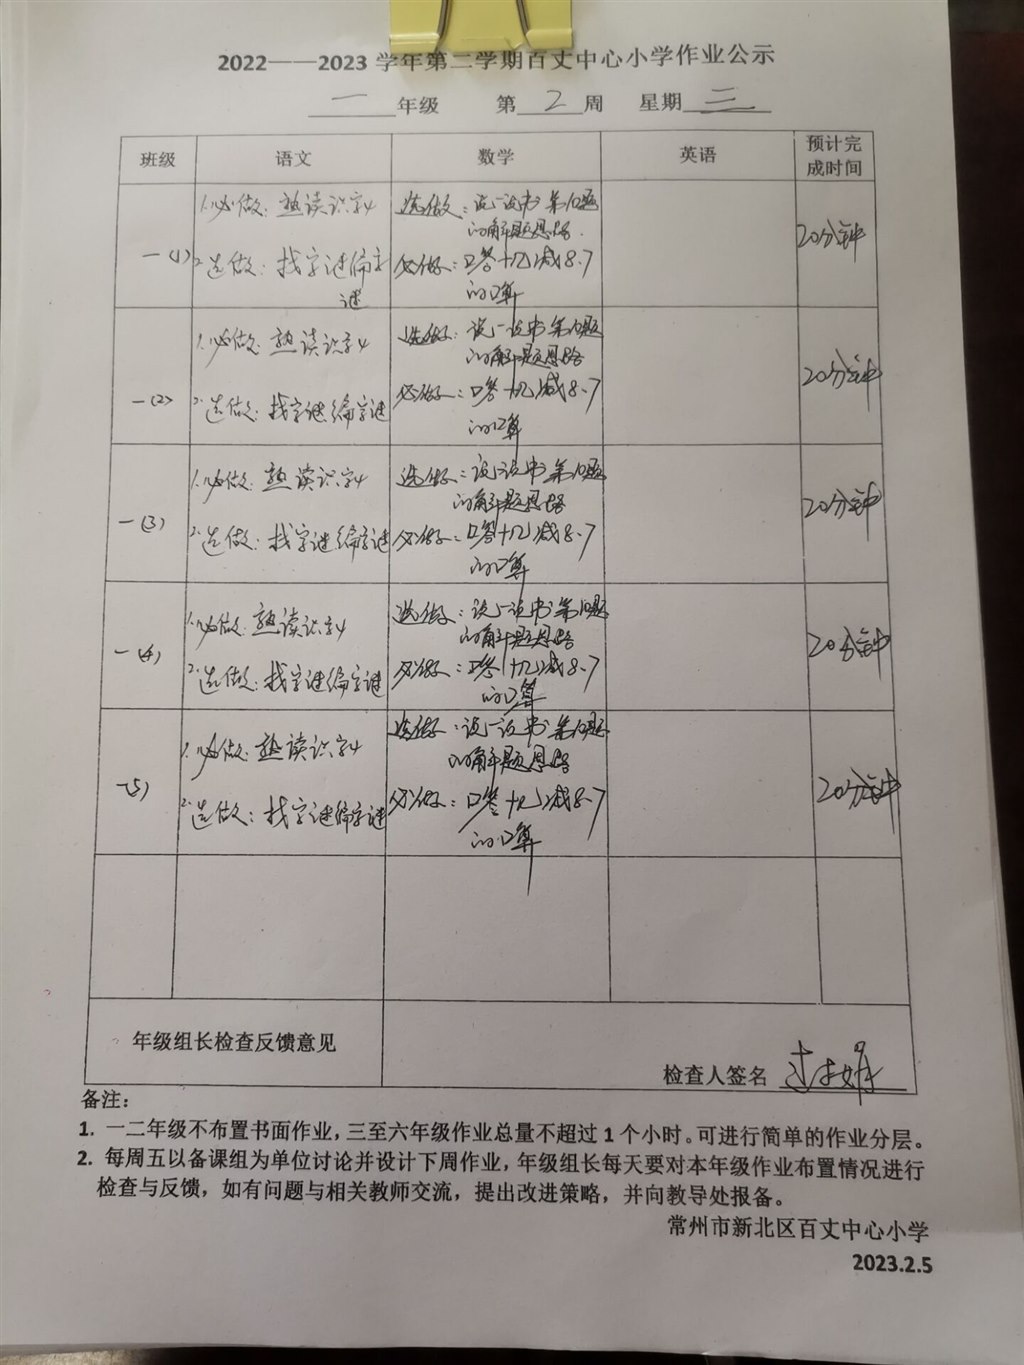 2022——2023 学年第二学期百丈中心小学作业公示
一 年级 第 2 周 星期 三
班级 语文 数学 英语 预计完
成时间
1.必做：熟读识字4 选做：说一说书第10题
的解题思路.
一(1) 2.选做：找字谜编字 必做：口答十几减8.7 20分钟
谜 的口算
1.必做：熟读识字4 选做：说一说书第10题
的解题思路
一(2) 2.选做：找字谜编字谜 必做：口答十几减8.7 20分钟
的口算
1.必做：熟读识字4 选做：说一说书第10题
的解题思路
一(3) 2.选做：找字谜编字谜 必做：口答十几减8.7 20分钟
的口算
1.必做：熟读识字4 选做：说一说书第10题
的解题思路
一(4) 2.选做：找字谜编字谜 必做：口答十几减8.7 20分钟
的口算
1.必做：熟读识字4 选做：说一说书第10题
的解题思路
一(5) 2.选做：找字谜编字谜 必做：口答十几减8.7 20分钟
的口算
年级组长检查反馈意见
检查人签名
备注：
1. 一二年级不布置书面作业，三至六年级作业总量不超过 1 个小时。可进行简单的作业分层。
2. 每周五以备课组为单位讨论并设计下周作业，年级组长每天要对本年级作业布置情况进行
检查与反馈，如有问题与相关教师交流，提出改进策略，并向教导处报备。
常州市新北区百丈中心小学
2023.2.5